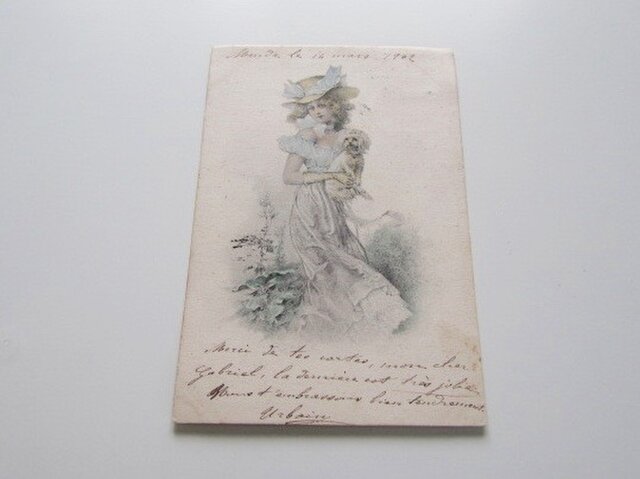 Mende le 14 mars 1902
Merci de tes cartes, mon cher
Gabriel, la dernière est très jolie
Nous t'embrassons bien tendrement
Urbain